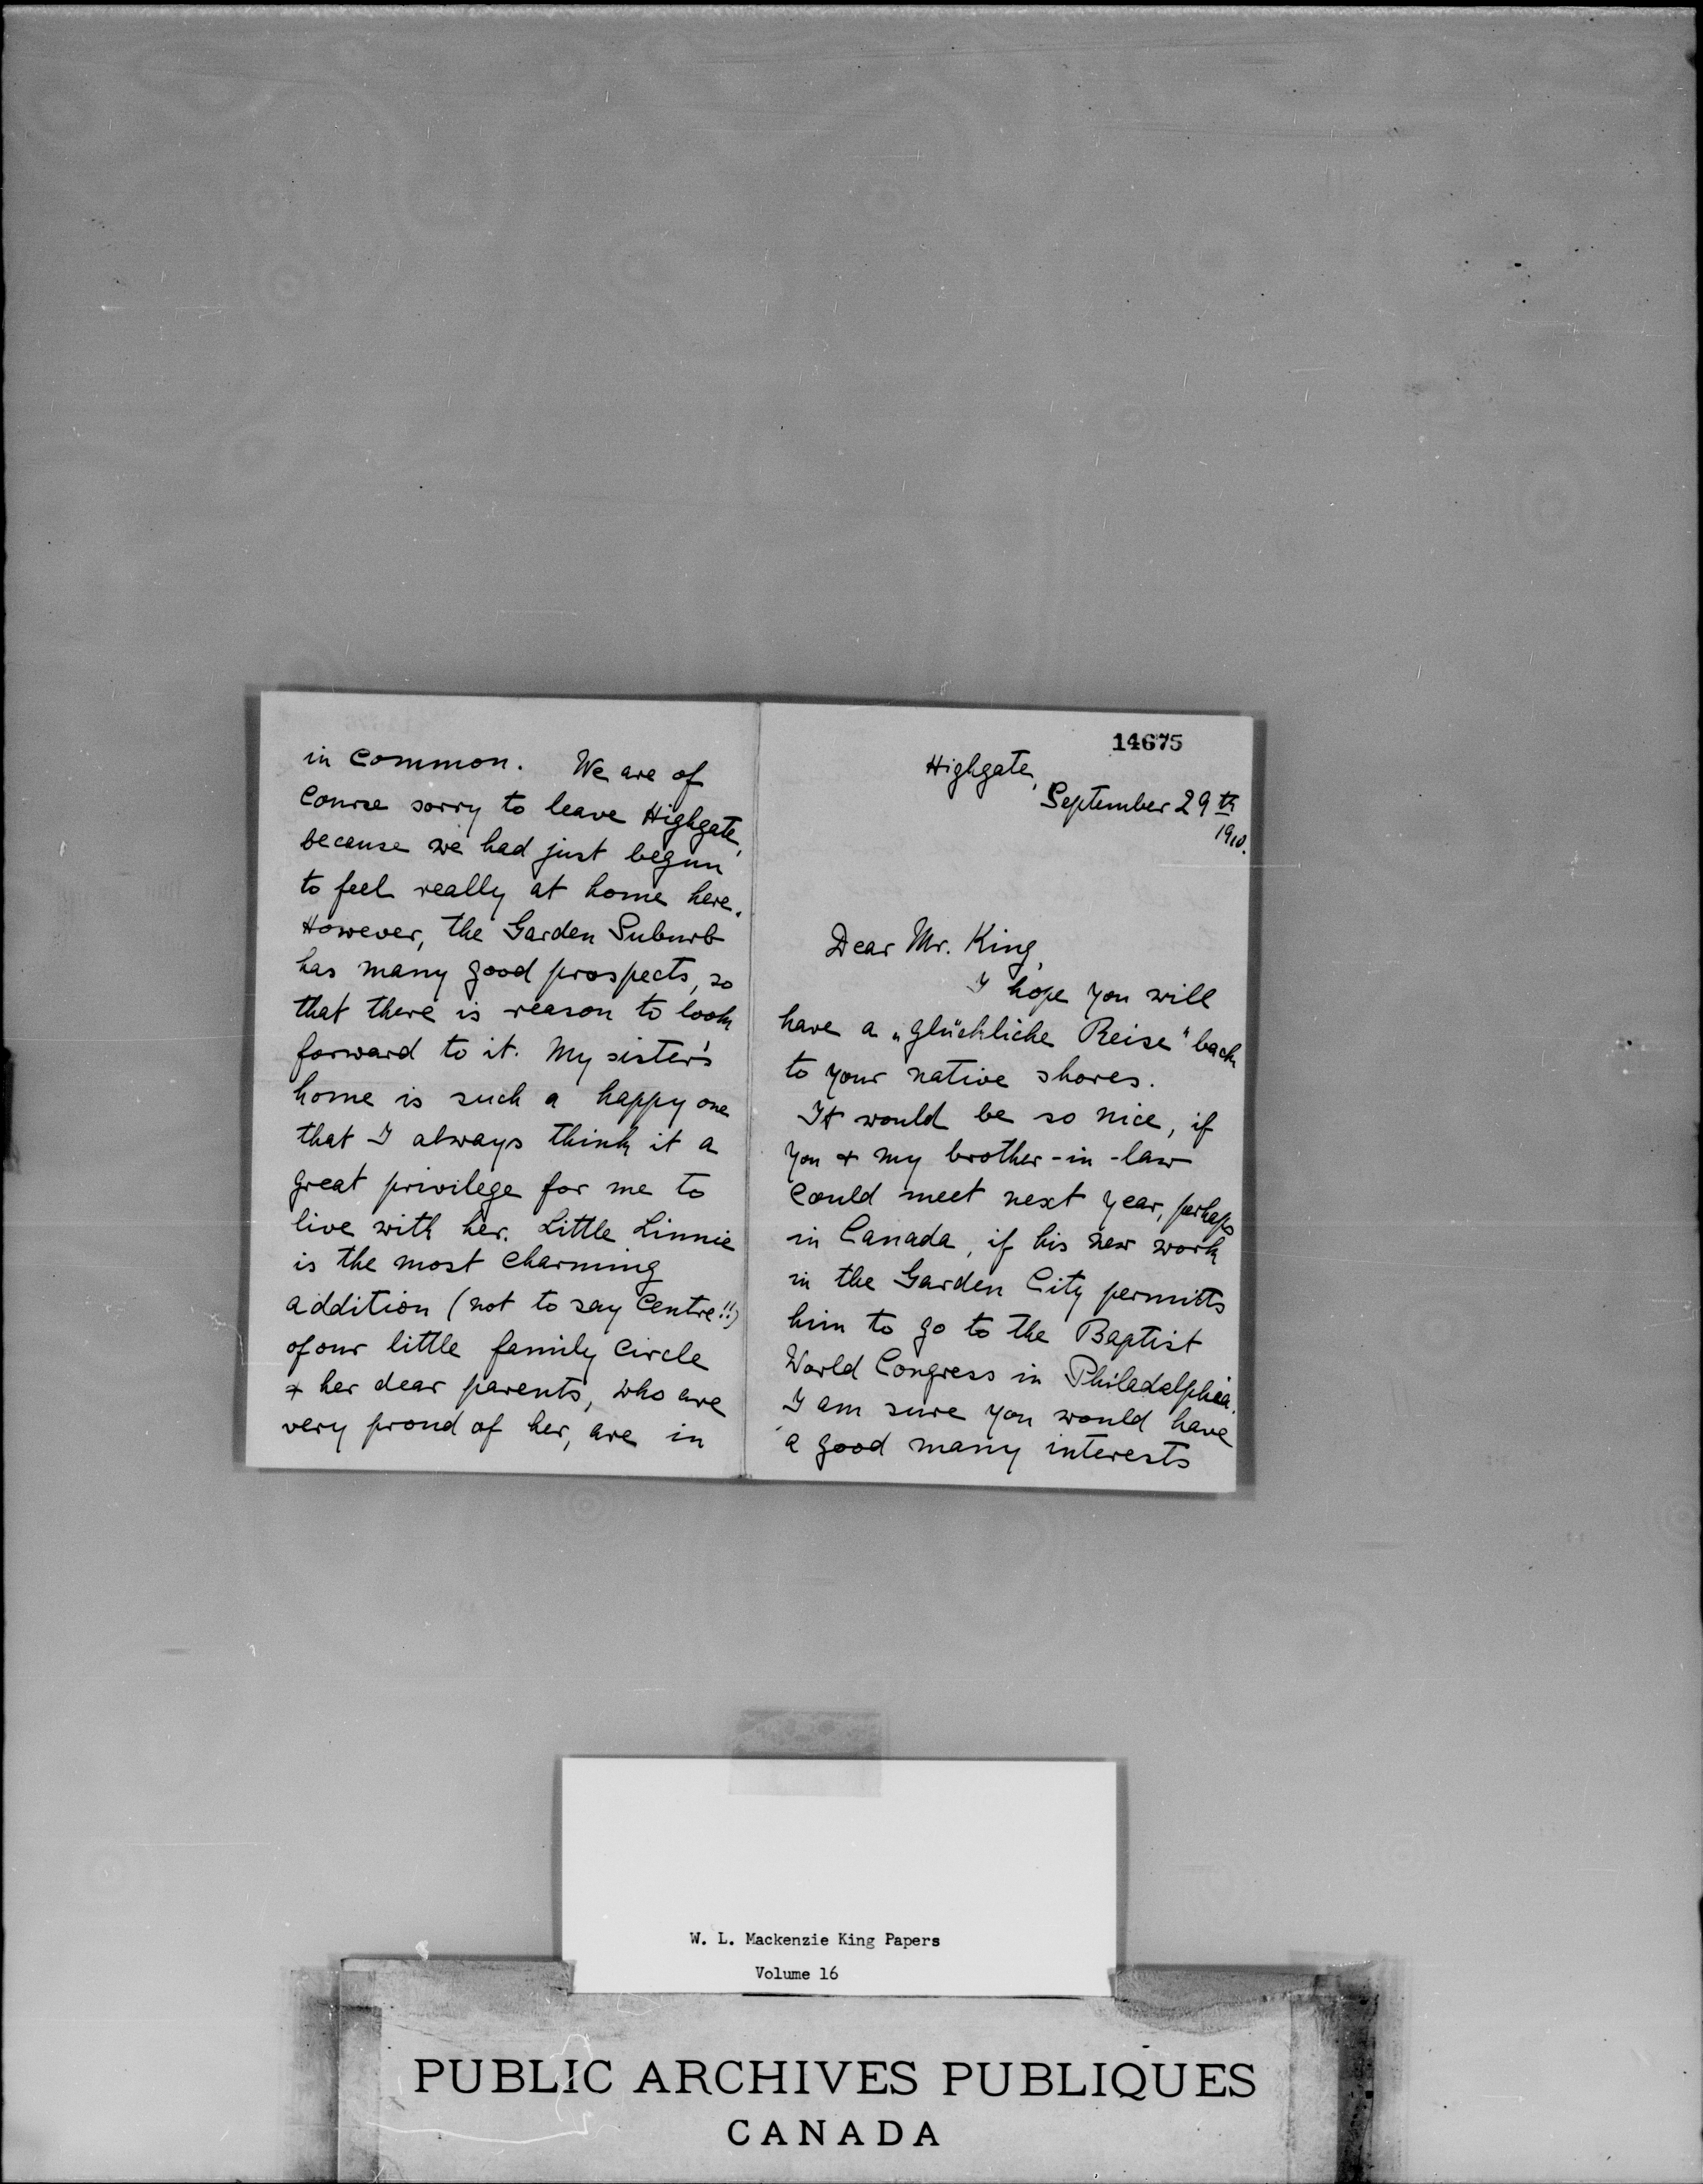 14675
Highgate,
September 29th
1910.
Dear Mr. King,
I hope you will
have a „glückliche Reise" back
to your native shores.
It would be so nice, if
you & my brother-in-law
could meet next year, perhaps
in Canada, if his new work
in the Garden City permitts
him to go to the Baptist
World Congress in Philadelphia.
I am sure you would have
a good many interests
in common. We are of
course sorry to leave Highgate,
because we had just begun
to feel really at home here.
However, the Garden Suburb
has many good prospects, so
that there is reason to look
forward to it. My sister's
home is such a happy one
that I always think it a
great privilege for me to
live with her. Little Linnie
is the most charming
addition (not to say centre!!)
of our little family circle
& her dear parents, who are
very proud of her, are in
W. L. Mackenzie King Papers
Volume 16
PUBLIC ARCHIVES PUBLIQUES
CANADA